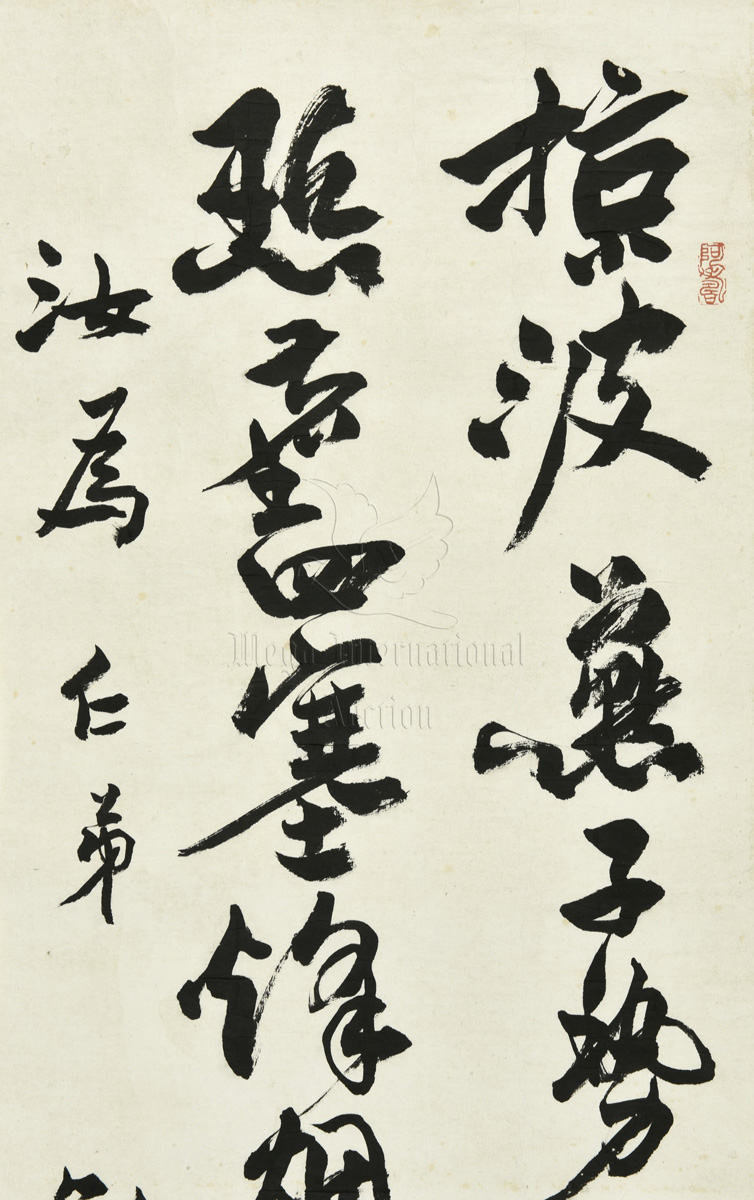 掠波燕子勢
點四塞烽烟
汝為仁弟
Mega International
Auction